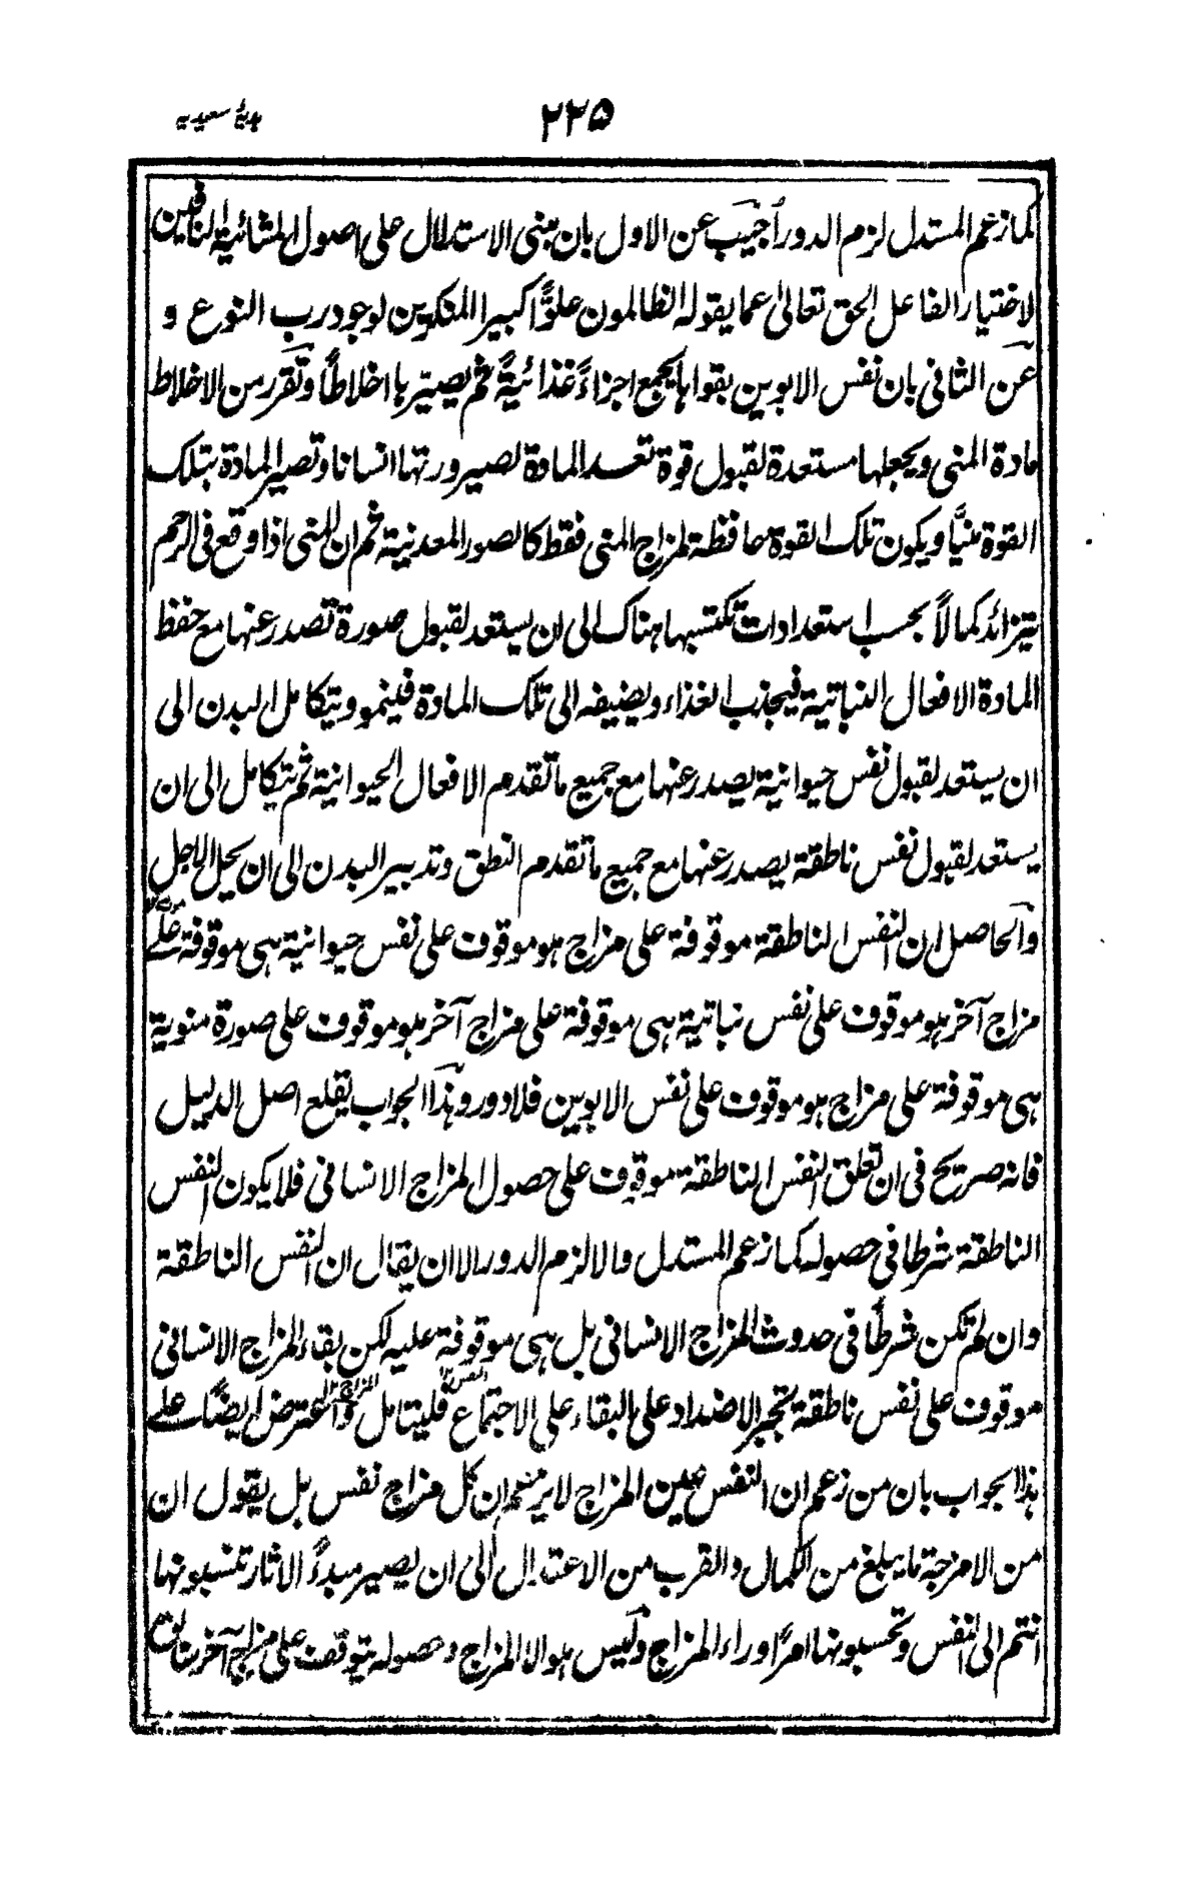 ٢٢٥
ہدیۂ سعیدیہ
كما زعم المستدل لزم الدور اُجيب عن الاول بان مبنى الاستدلال على اصول المشائية النافين
لاختيار الفاعل الحق تعالىٰ عما يقوله الظالمون علوًّا كبيرا المنكرين لوجود رب النوع و
عن الثانى بان نفس الابوين بقواها يجمع اجزاءً غذائيةً ثم يصيّرها اخلاطًا وتقرر من الاخلاط
مادة المنى ويجعلها مستعدة لقبول قوة تعد المادة لصيرورتها انسانا وتصير المادة بتلك
القوة منيًّا ويكون تلك القوة حافظة لمزاج المنى فقط كالصور المعدنية ثم ان المنى اذا وقع فى الرحم
يتزائد كمالاً بحسب استعدادات تكتسبها هناك الى ان يستعد لقبول صورة تصدر عنها مع حفظ
المادة الافعال النباتية فيجذب الغذاء ويضيفه الى تلك المادة فينمو ويتكامل البدن الى
ان يستعد لقبول نفس حيوانية يصدر عنها مع جميع ما تقدم الافعال الحيوانية ثم يتكامل الى ان
يستعد لقبول نفس ناطقة يصدر عنها مع جميع ما تقدم النطق وتدبير البدن الى ان يحل الاجل
والحاصل ان النفس الناطقة موقوفة على مزاج هو موقوف على نفس حيوانية هى موقوفة على
مزاج آخر هو موقوف على نفس نباتية هى موقوفة على مزاج آخر هو موقوف على صورة منوية
هى موقوفة على مزاج هو موقوف على نفس الابوين فلا دور وهذا الجواب يقلع اصل الدليل
فانه صريح فى ان تعلق النفس الناطقة موقوف على حصول المزاج الانسانى فلا يكون النفس
الناطقة شرطا فى حصوله كما زعم المستدل والا لزم الدور الا ان يقال ان النفس الناطقة
وان لم تكن شرطًا فى حدوث المزاج الانسانى بل هى موقوفة عليه لكن بقاء المزاج الانسانى
موقوف على نفس ناطقة تجبر الاضداد على البقاء على الاجتماع فليتامل واعترض ايضًا على
هذا الجواب بان من زعم ان النفس عين المزاج لا يزعم ان كل مزاج نفس بل يقول ان
من الامزجة ما يبلغ من الكمال والقرب من الاعتدال الى ان يصير مبدءً الاثار تنسبونها
انتم الى النفس وتحسبونها امرًا وراء المزاج وليس هو الا المزاج وحصوله يتوقف على مزاج آخر سابق